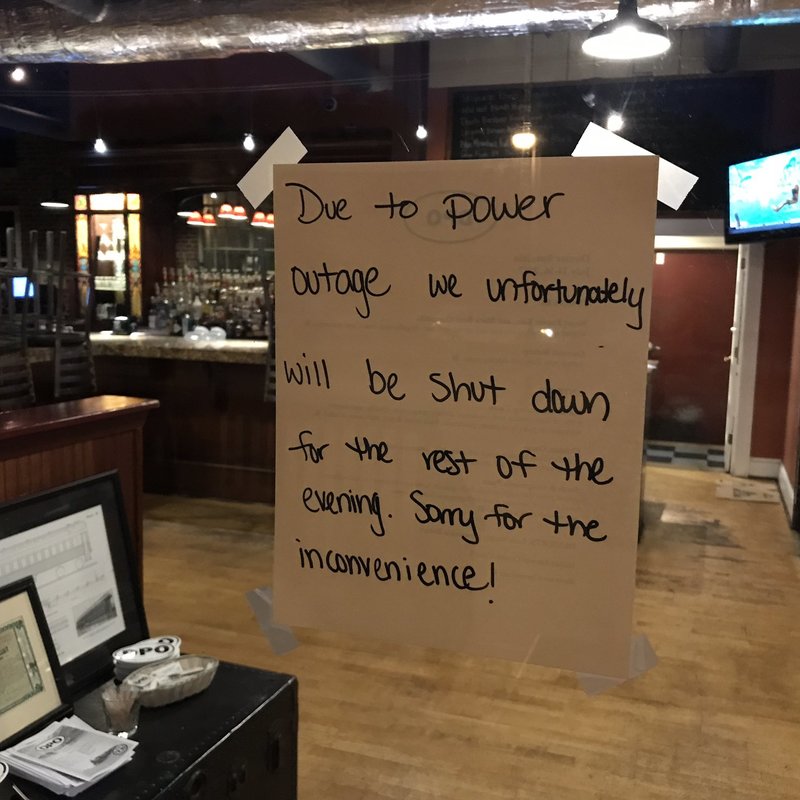 Due to power
outage we unfortunately
will be shut down
for the rest of the
evening. Sorry for the
inconvenience!
DPO
DPO